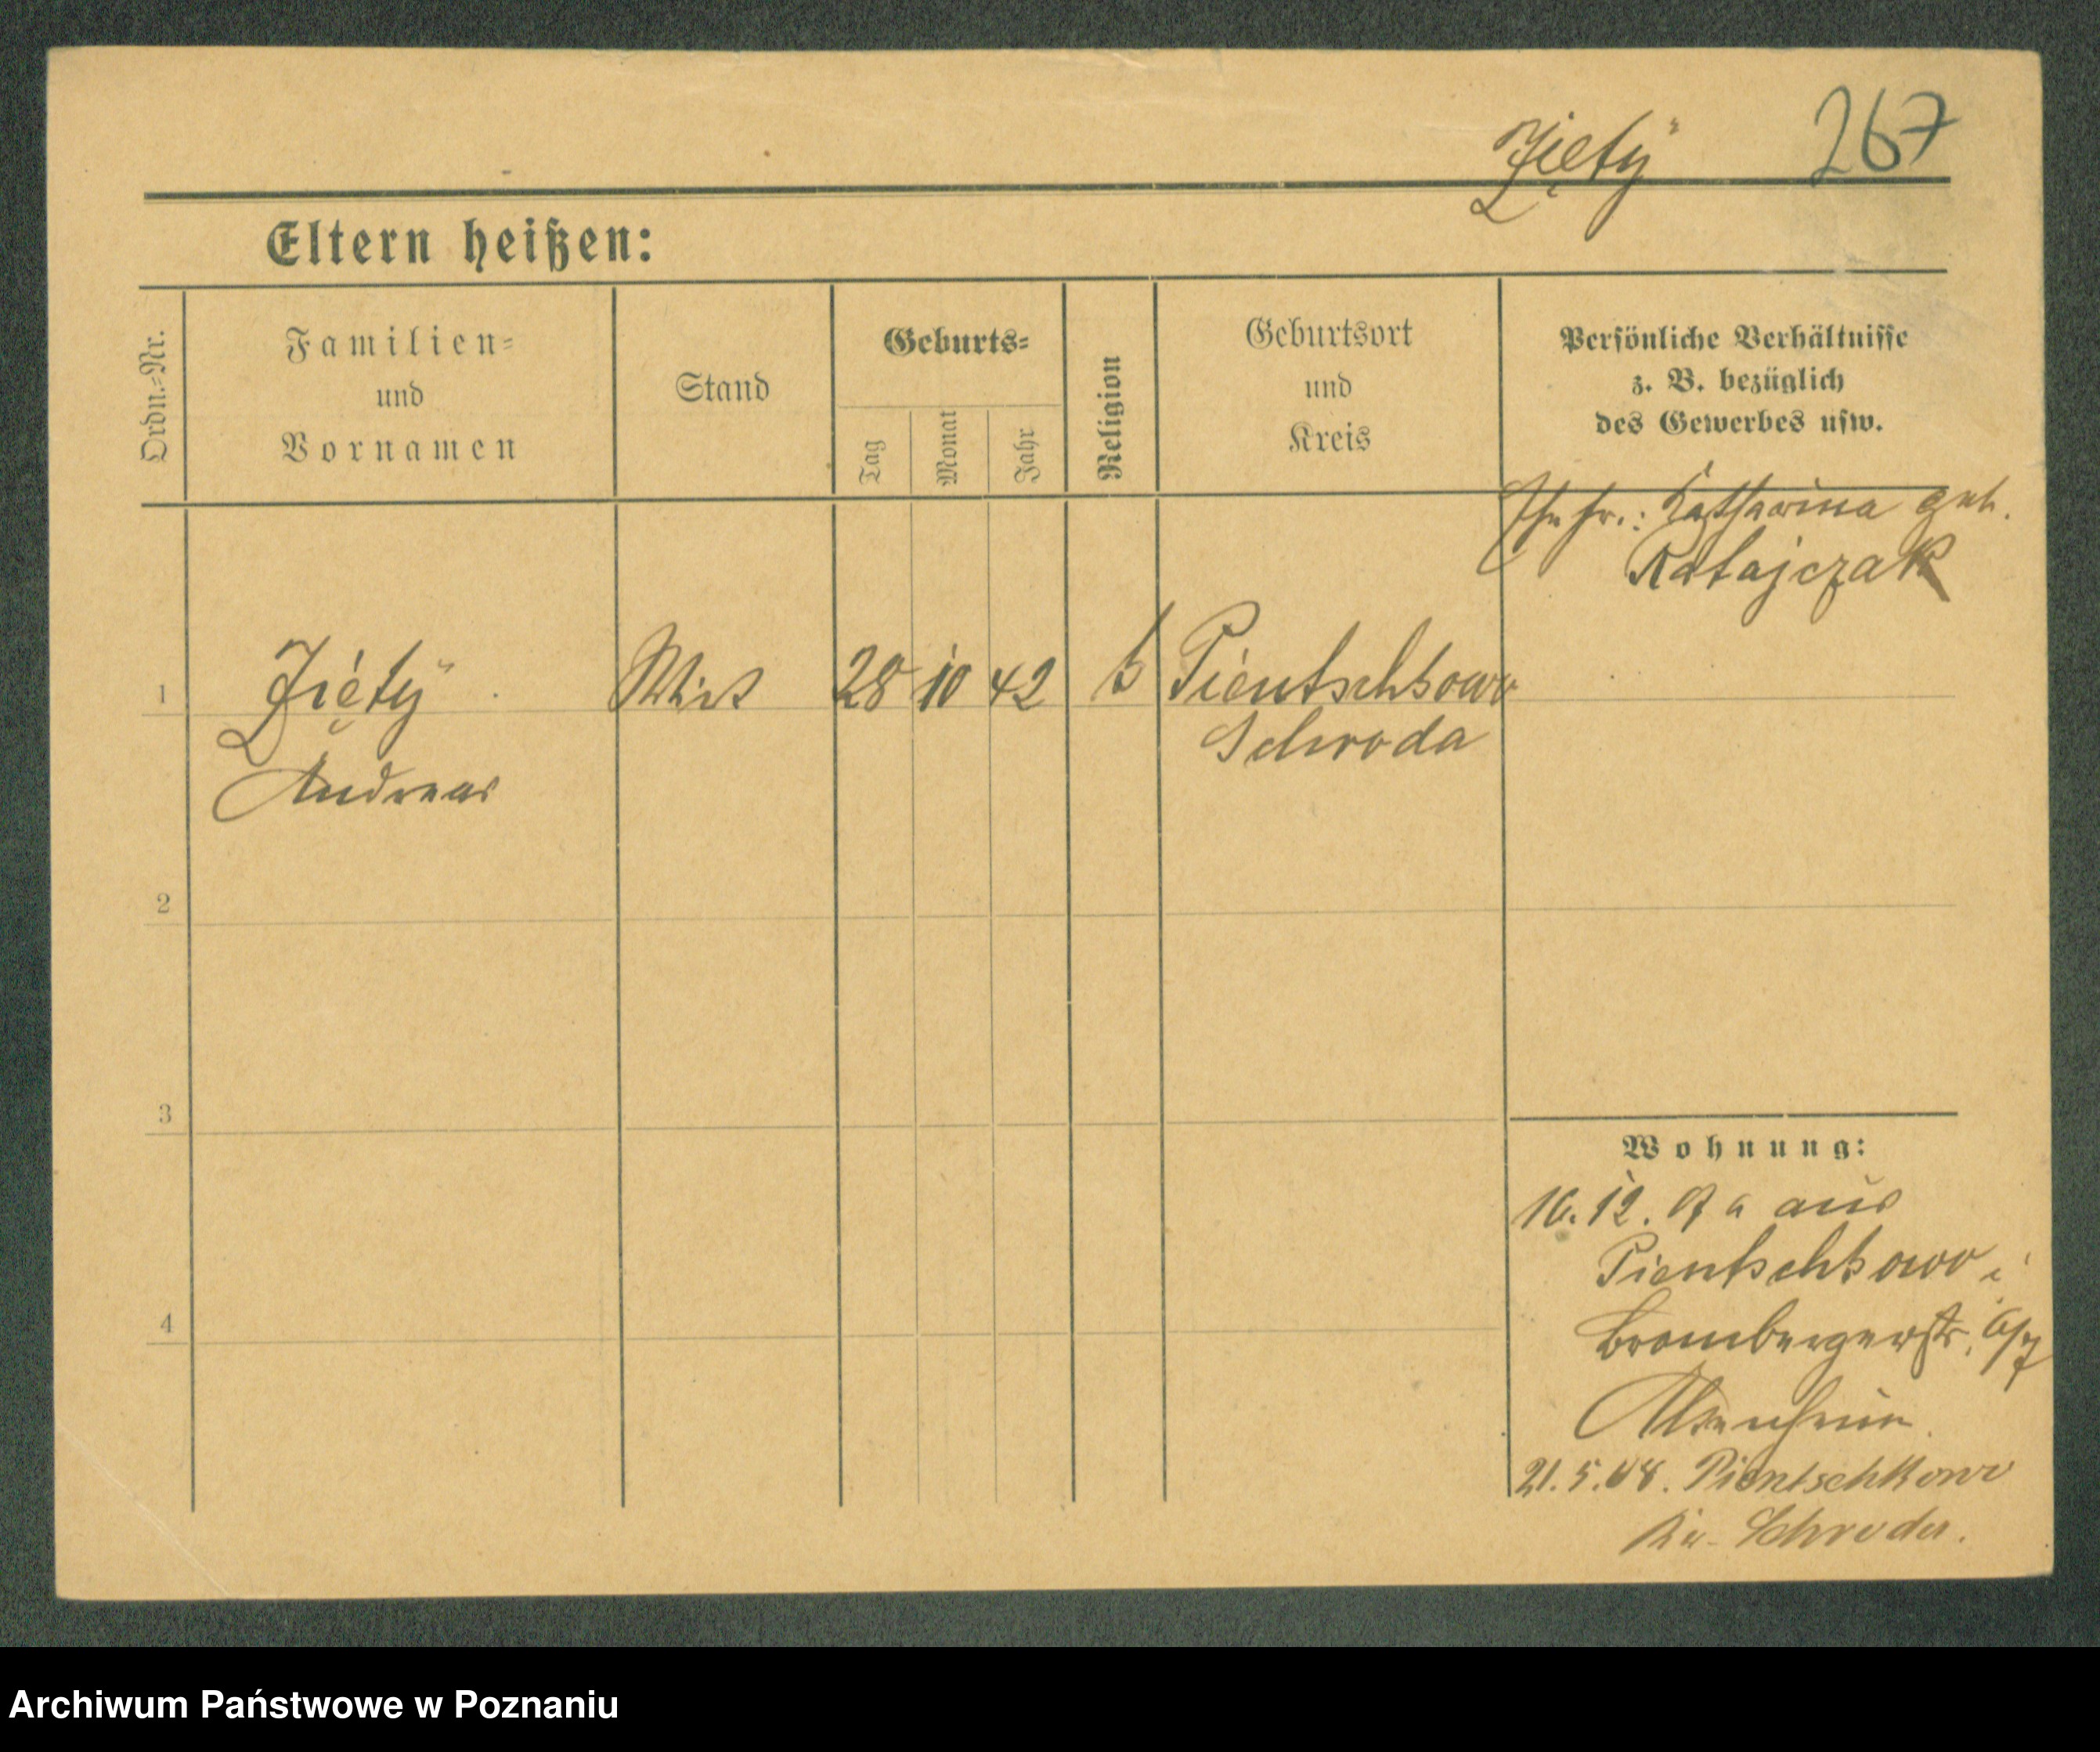 Zięty 267
Eltern heißen:
Ordn.-Nr.
Familien-
und
Vornamen
Stand
Geburts-
Tag
Monat
Jahr
Religion
Geburtsort
und
Kreis
Persönliche Verhältnisse
z. B. bezüglich
des Gewerbes usw.
Ehefr.: Katharina geb.
Ratajczak
1 Zięty Wirt 28 10 42 k Pientschkowo
Schroda
Andreas
2
3
4
Wohnung:
16. 12. 07 a aus
Pientschkowo i
Brombergerstr. 6/7
21. 5. 08. Pientschkowo
Kr. Schroda.
Archiwum Państwowe w Poznaniu